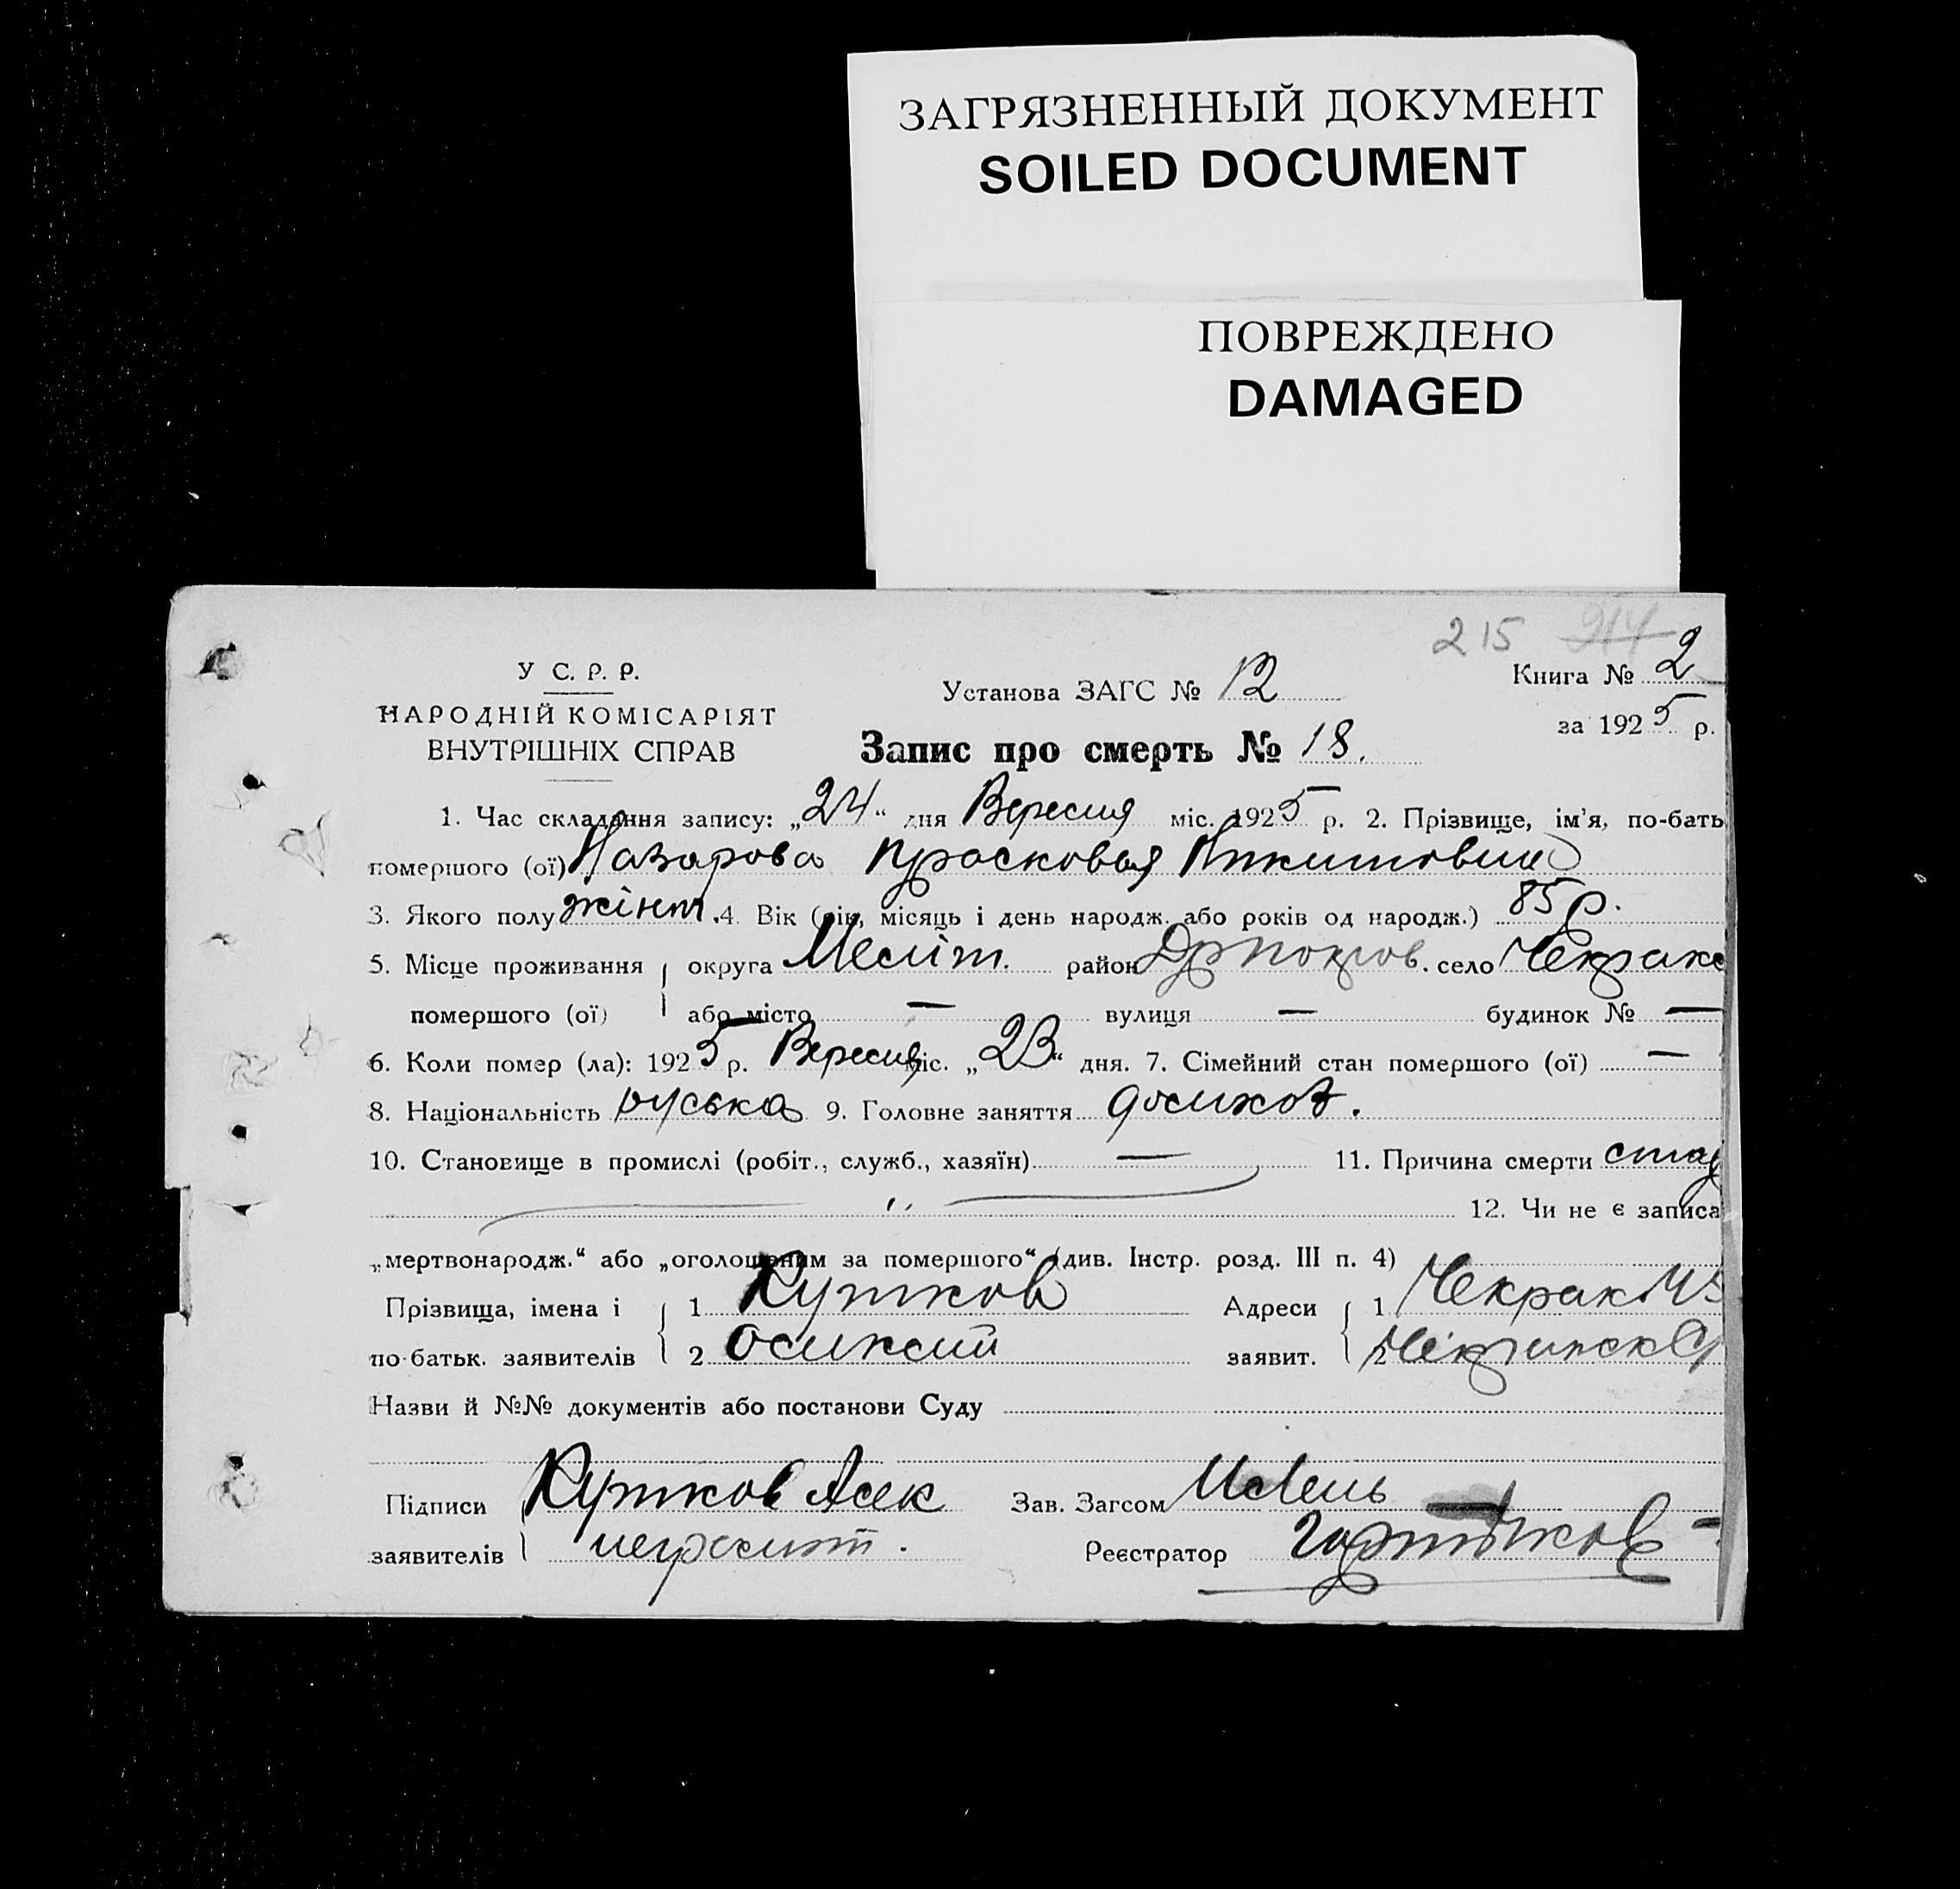 ЗАГРЯЗНЕННЫЙ ДОКУМЕНТ
SOILED DOCUMENT
ПОВРЕЖДЕНО
DAMAGED
215 214
У С. Р. Р.
НАРОДНІЙ КОМІСАРІЯТ
ВНУТРІШНІХ СПРАВ
Установа ЗАГС № 12
Книга № 2
за 1925 р.
Запис про смерть № 18.
1. Час складання запису: „24“ дня Вересня міс. 1925 р. 2. Прізвище, ім'я, по-бать
помершого (ої) Назарова Прасковья
3. Якого полу жіноч. 4. Вік (рік, місяць і день народж. або років од народж.) 85 р.
5. Місце проживання округа Меліт. район село Чекрак
помершого (ої) або місто — вулиця — будинок № —
6. Коли помер (ла): 1925 р. Вересня міс. „23“ дня. 7. Сімейний стан помершого (ої) —
8. Національність руська 9. Головне заняття домихоз.
10. Становище в промислі (робіт., служб., хазяїн) — 11. Причина смерти стар
12. Чи не є записа
„мертвонародж.“ або „оголошеним за помершого“ (див. Інстр. розд. III п. 4)
Прізвища, імена і 1 Кутков Адреси 1 Чекрак
по-батьк. заявителів 2 заявит. 2
Назви й №№ документів або постанови Суду
Підписи Кутков Алек Зав. Загсом
заявителів неграмот. Реєстратор